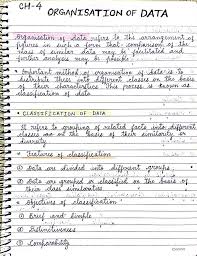 CH-4
ORGANISATION OF DATA
Organisation of data refers to the arrangement of
figures in such a form that comparison of the
mass of similar data may be facilitated and
further analysis may be possible.
• Important method of organisation of data is to
distribute them into different classes on the basis
of their characteristics. This process is known as
classification of data
• CLASSIFICATION OF DATA
It refers to grouping of related facts into different
classes on the basis of their similarity or
diversity
• Features of classification
① Data are divided into different groups
② Data are grouped or classified on the basis of
their class similarities
• Objectives of classification
① Brief and Simple
② Distinctiveness
③ Comparability